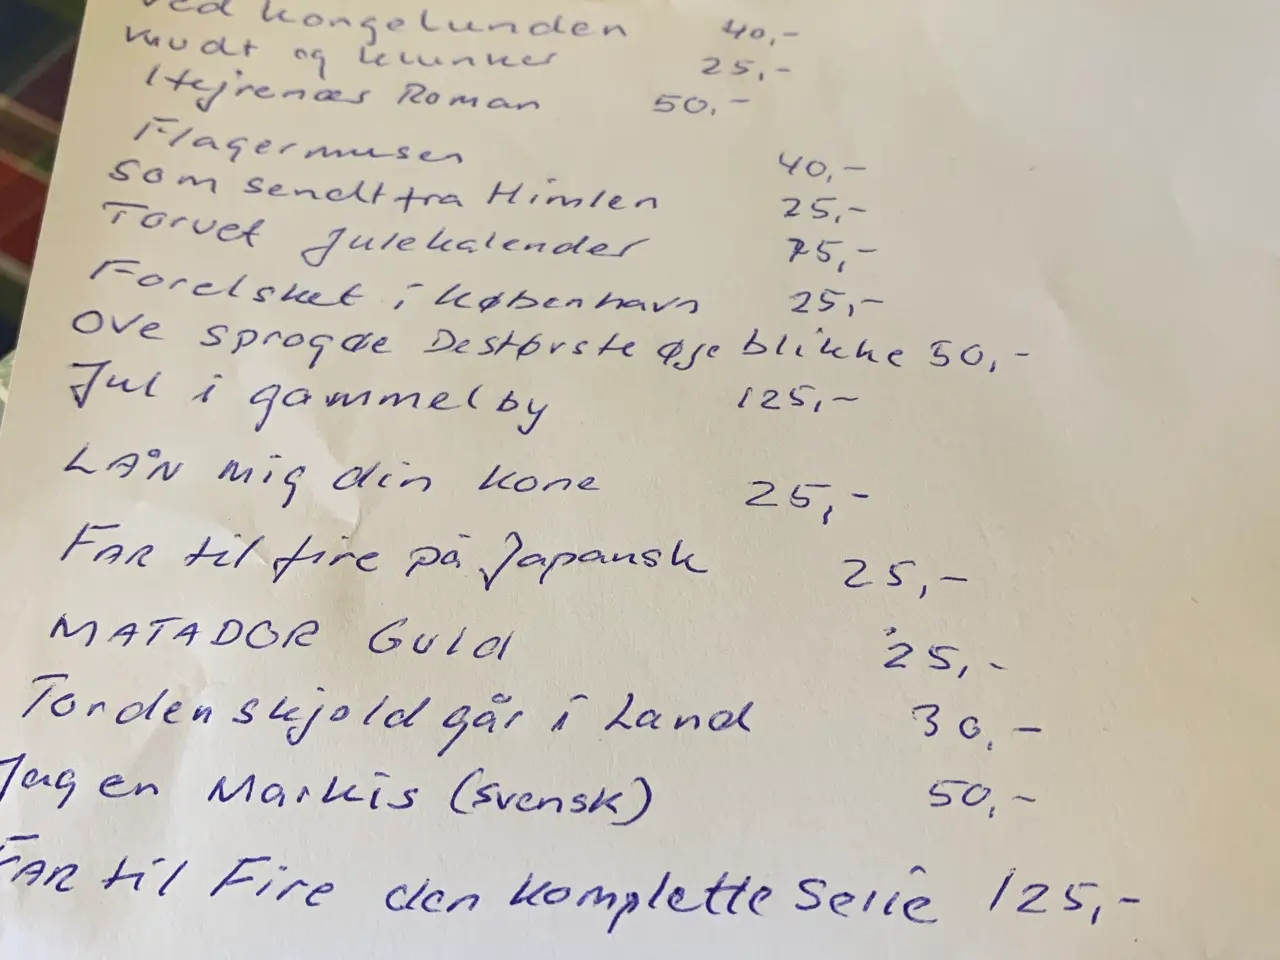 ved kongelunden 40,-
Knudt og klunker 25,-
Hejrenæs Roman 50,-
Flagermusen 40,-
som sendt fra Himlen 25,-
Torvet Julekalender 75,-
Forelsket i København 25,-
Ove sprogøe De største øjeblikke 50,-
Jul i gammelby 125,-
LÅN mig din kone 25,-
FAR til fire på Japansk 25,-
MATADOR Guld 25,-
Tordenskjold går i Land 30,-
Jag en Markis (svensk) 50,-
FAR til Fire den komplette Serie 125,-